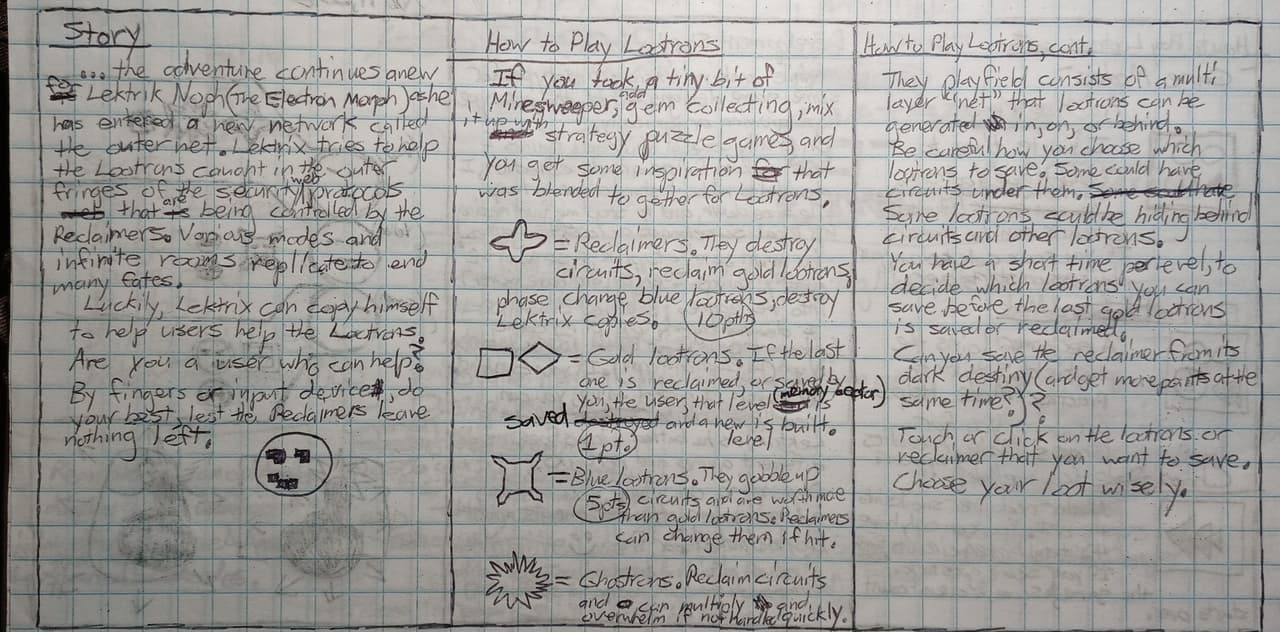 Story
... the adventure continues anew
Lektrik Noph (The Electron Morph) as he
has entered a new network called
the outer net. Lektrix tries to help
the Lootrons caught in the outer
fringes of the security web protocols
that are being controlled by the
Reclaimers. Various modes and
infinite rooms replicate to end
many fates.
Luckily, Lektrix can copy himself
to help users help the Lootrons.
Are you a user who can help?
By fingers or input device, do
your best lest the Reclaimers leave
nothing left.
How to Play Lootrons
If you took a tiny bit of
Minesweeper, add gem collecting, mix
it up with strategy puzzle games, and
you get some inspiration that
was blended together for Lootrons.
= Reclaimers. They destroy
circuits, reclaim gold lootrons,
phase change blue lootrons, destroy
Lektrix copies. 10pts
= Gold lootrons. If the last
one is reclaimed, or saved by
you, the user, that level (memory sector) is
saved and a new is built.
1pt. level
= Blue lootrons. They gobble up
5pts circuits and are worth more
than gold lootrons. Reclaimers
can change them if hit.
= Ghostrons. Reclaim circuits
and can multiply and
overwhelm if not handled quickly.
How to Play Lootrons, cont.
They playfield consists of a multi
layer "net" that lootrons can be
generated in, on, or behind.
Be careful how you choose which
lootrons to save. Some could have
circuits under them. Some could have
Some lootrons could be hiding behind
circuits and other lootrons.
You have a short time per level, to
decide which lootrons you can
save before the last gold lootrons
is saved or reclaimed.
Can you save the reclaimer from its
dark destiny (and get more points at the
same time?)?
Touch or click on the lootrons or
reclaimer that you want to save.
Choose your loot wisely.